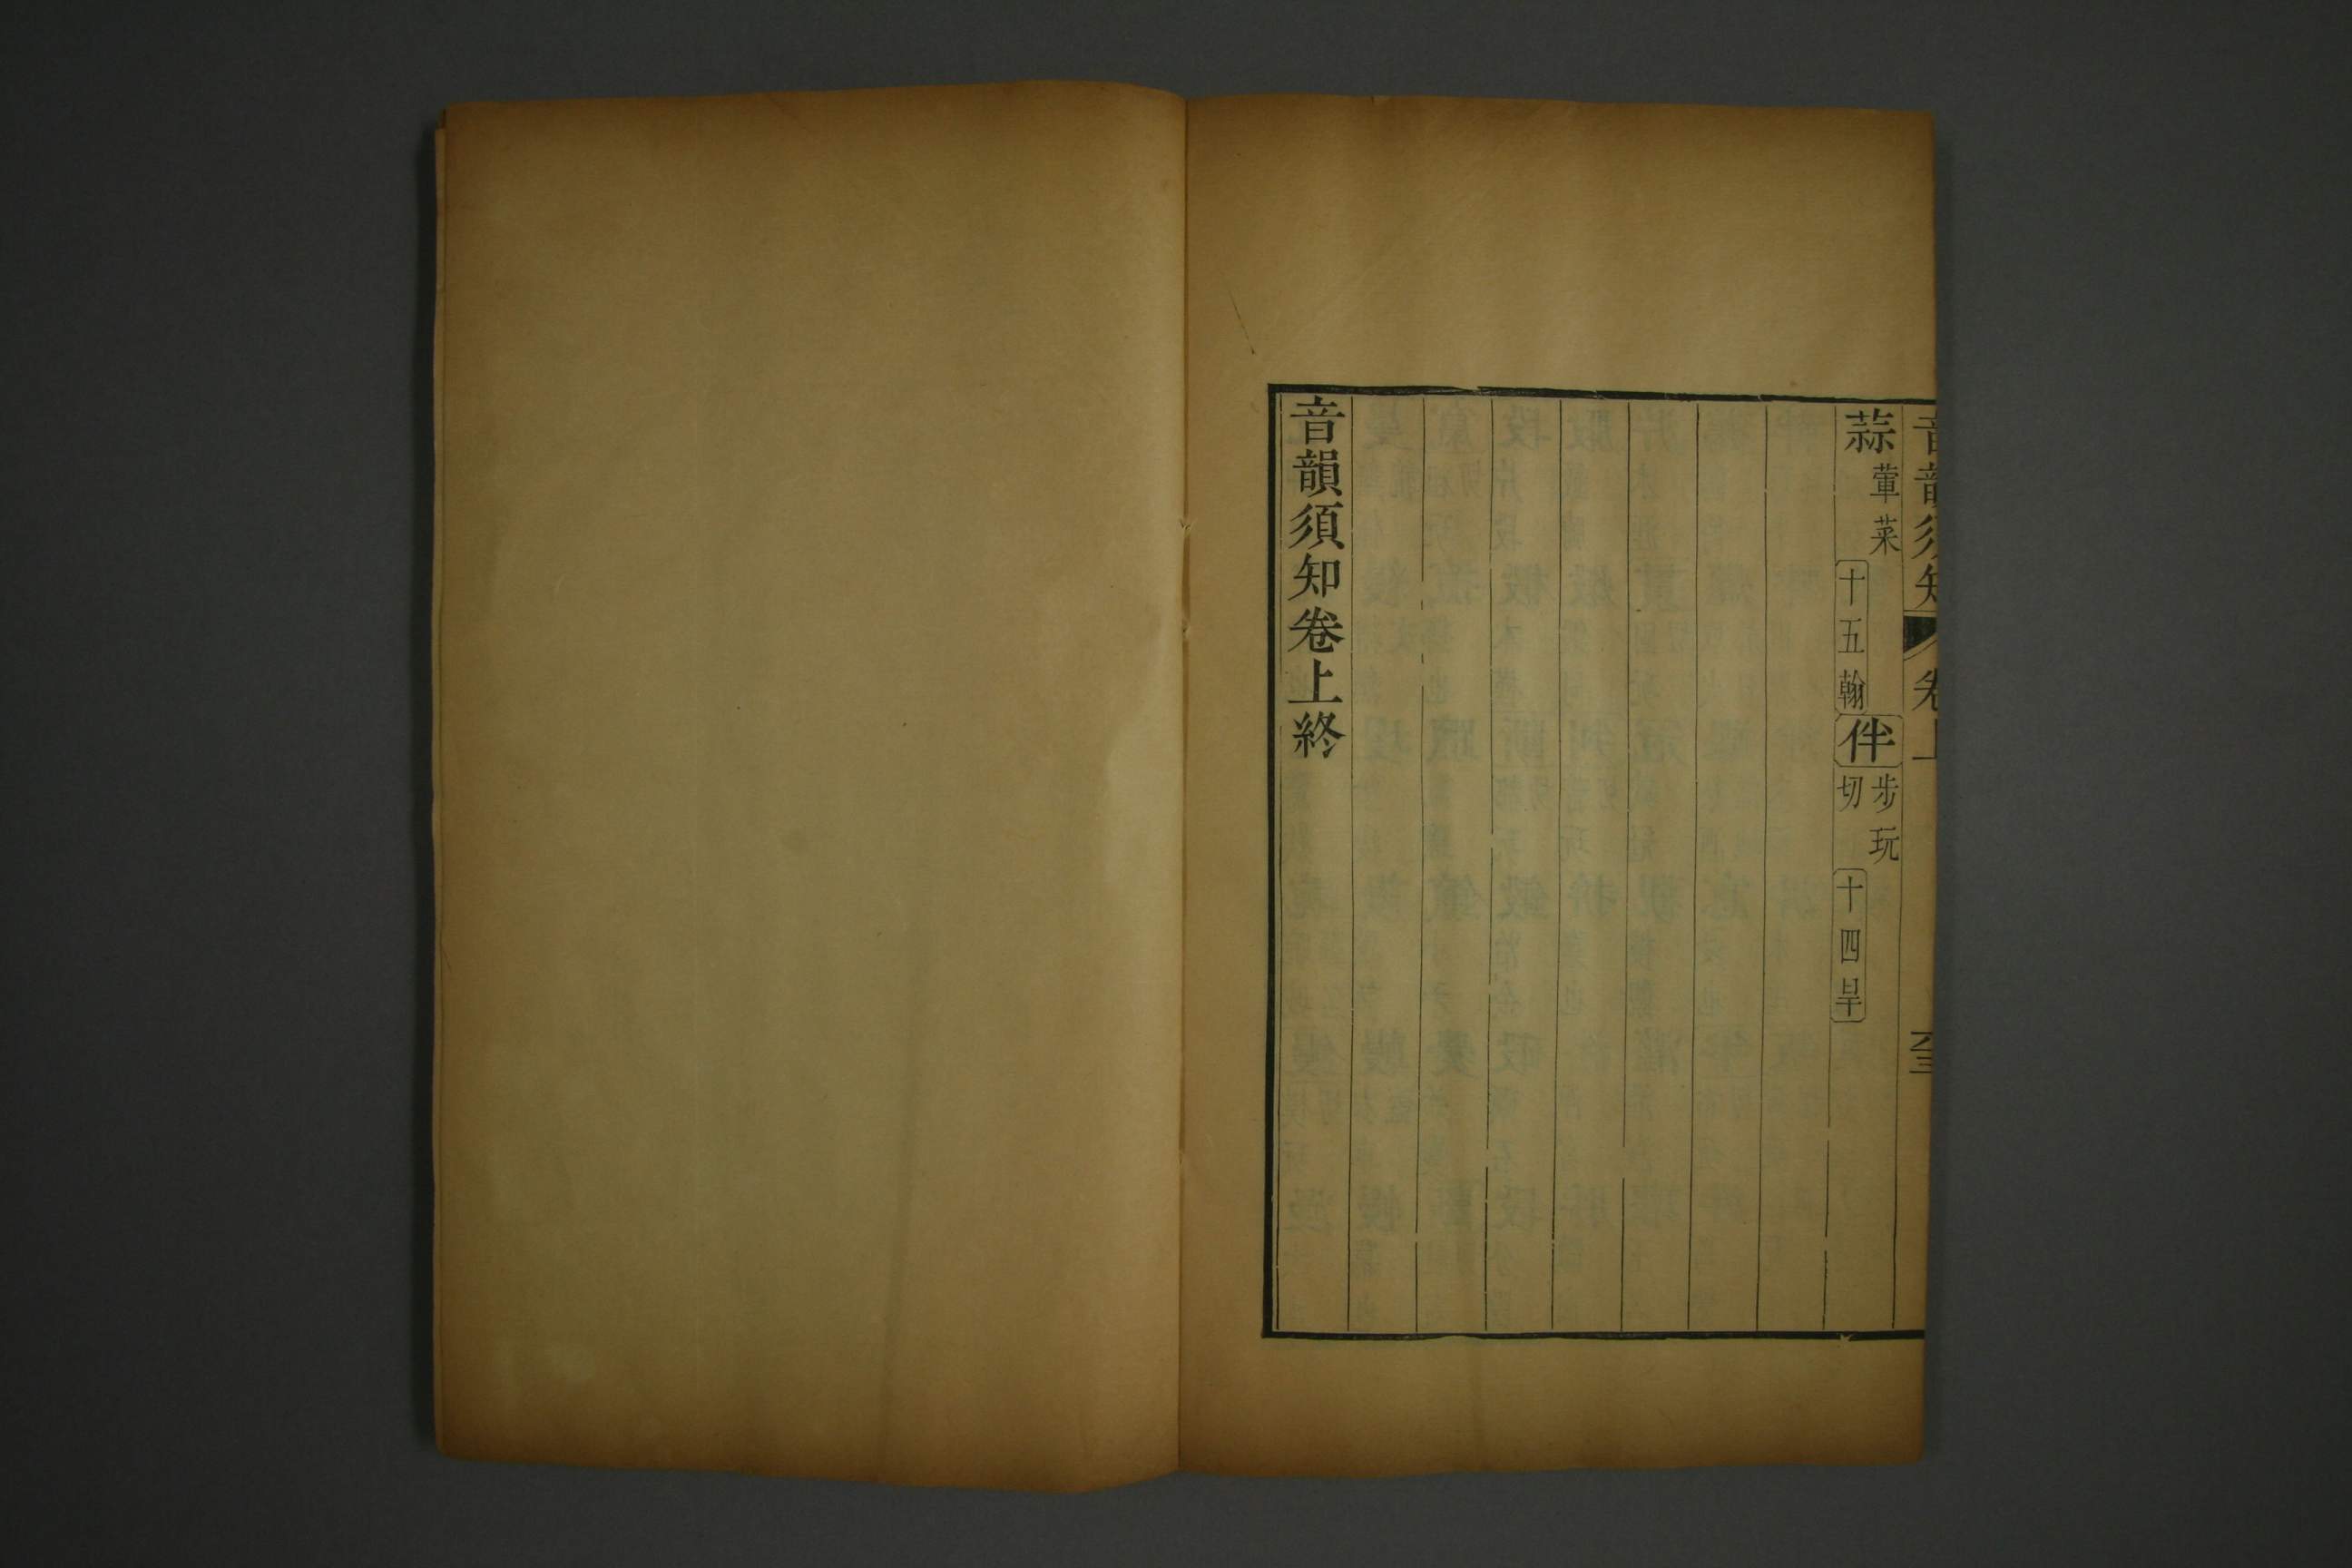 音韻須知 卷上 六三
蒜 葷菜 十五翰 伴 步玩切 十四旱
音韻須知卷上終